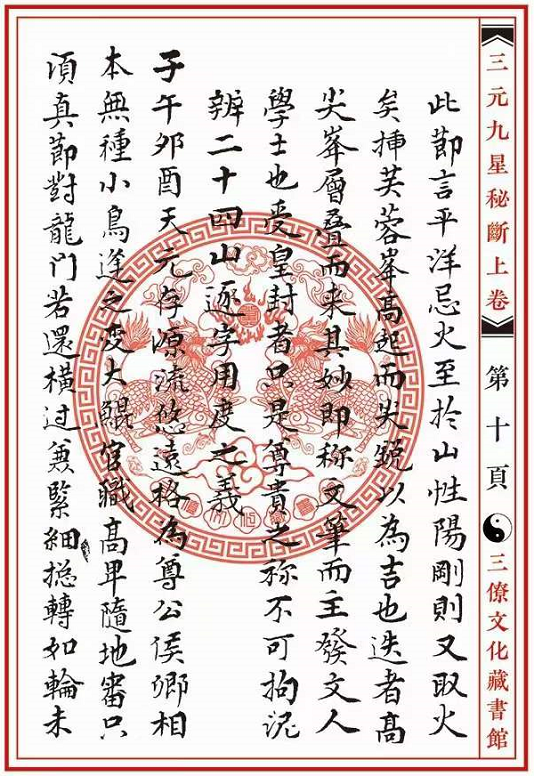 三元九星秘斷上卷
第十頁
三僚文化藏書館
此莭言平洋忌火至於山性陽剛則又取火
矣揷芙蓉峯高起而尖銳以為吉也迭者高
尖峯層疊而来其妙即称文筆而主發文人
學士也受皇封者只是尊貴之称不可拘泥
辨二十四山逐字用度之義
子午夘酉天元存源流悠遠格為尊公侯卿相
本無種小鳥逢之变大鯤官職高卑隨地審只
湏真莭對龍門若還橫过兼緊細摠轉如輪未